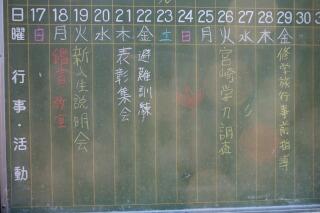 日 17 18 19 20 21 22 23 24 25 26 27 28 29 30
曜 日 月 火 水 木 金 土 日 月 火 水 木 金
行事・活動
鑑賞教室
新入生説明会
表彰集会
避難訓練
宮崎学力調査
修学旅行事前指導